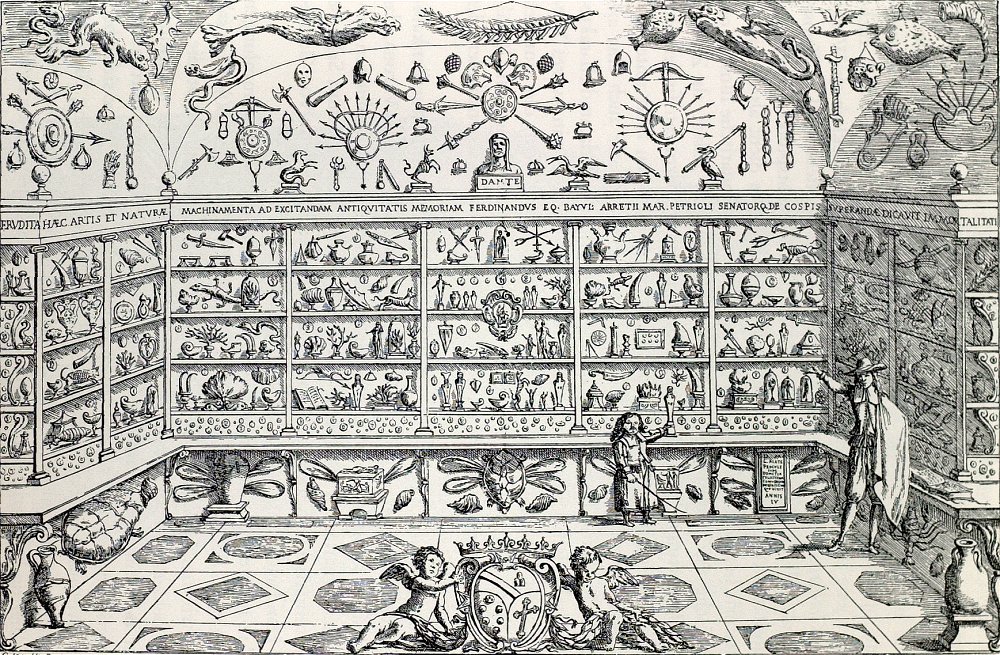 DANTE
ERVDITA HÆC ARTIS ET NATVRÆ
MACHINAMENTA AD EXCITANDAM ANTIQVITATIS MEMORIAM FERDINANDVS EQ. BAYVL: ARRETII MAR. PETRIOLI SENATORQ. DE COSPIS
SVPERANDÆ DICAVIT IMMORTALITATI
ANNIS
LV